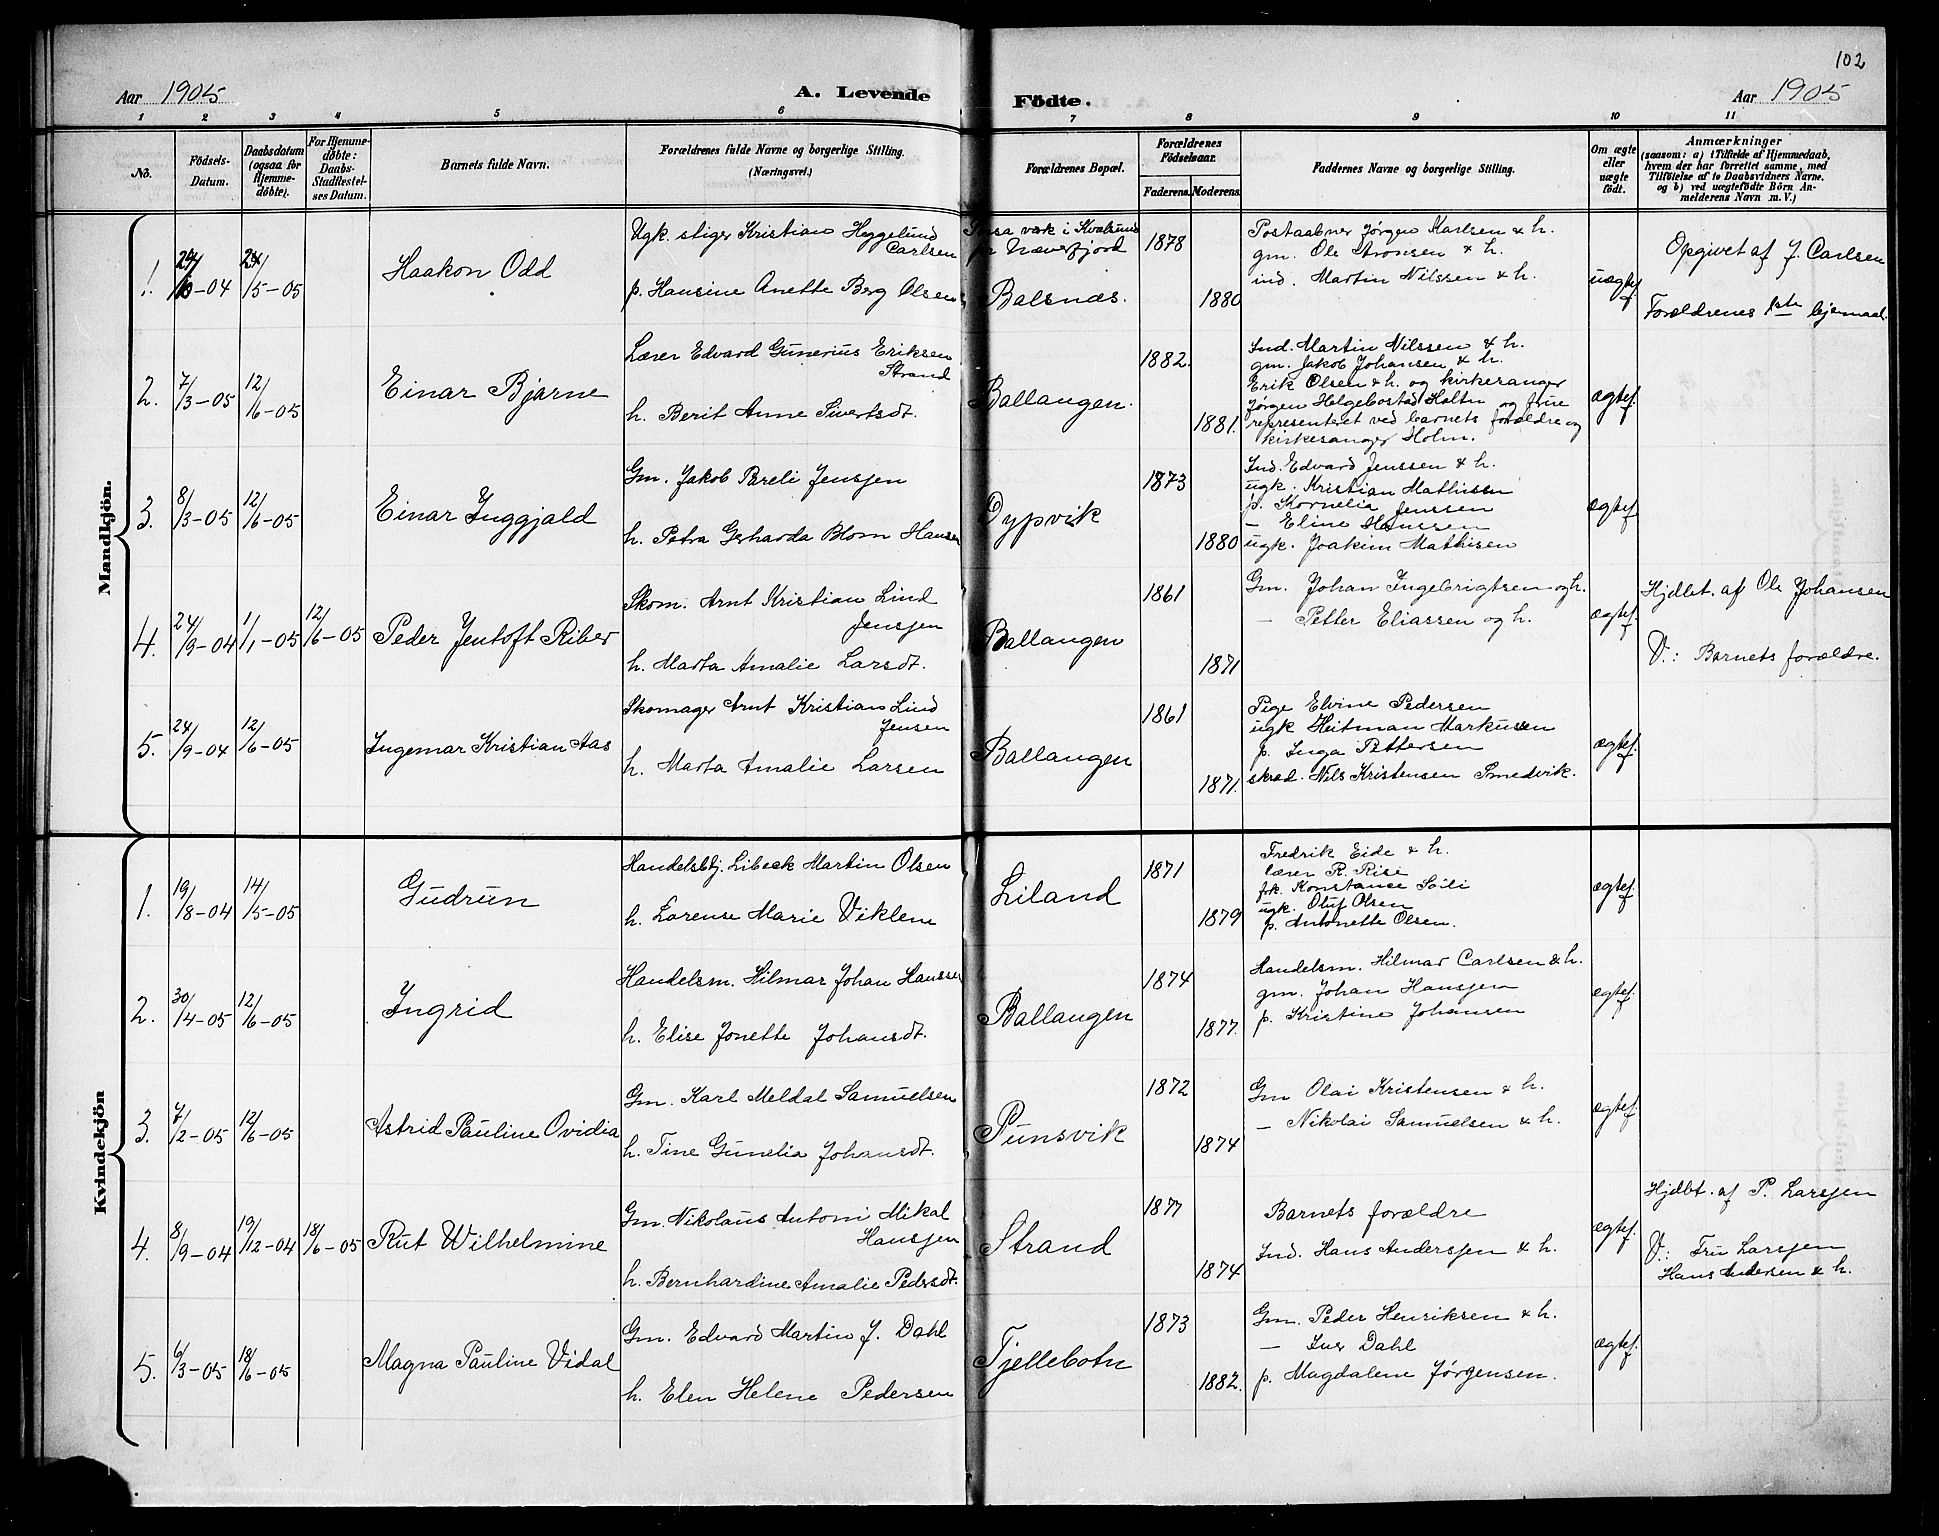 102
Aar 1905
A. Levende
Födte.
Aar 1905
1 2 3 4 5 6 7 8 9 10 11
No.
Födsels-
Datum.
Daabsdatum
(ogsaa for
Hjemme-
döbte).
For Hjemme-
döbte:
Daabs-
Stadfæstel-
ses Datum.
Barnets fulde Navn.
Forældrenes fulde Navne og borgerlige Stilling.
(Næringsvei.)
Forældrenes Bopæl.
Forældrenes
Födselsaar.
Faderens.
Moderens.
Faddernes Navne og borgerlige Stilling.
Om ægte
eller
uægte
födt.
Anmærkninger
(saasom: a) i Tilfælde af Hjemmedaab,
hvem der har forrettet samme, med
Tilföielse af to Daabsvidners Navne,
og b) ved uægtefödte Börn An-
melderens Navn m. V.)
Mandkjön.
1. /10-04 /5-05 Haakon Odd
Ugk. stiger Kristian Heggelund
Carlsen
p. Hansine Anette Berg Olsen
væk i Kvalsund
pr Næverfjord
Balsnæs.
1878
1880
Postaabner Jørgen Karlsen & h.
gm. Ole Aronsen & h.
ind. Martin Nilssen & h.
uægtef.
Opgivet af J. Carlsen
Forældrenes 1ste lejermaal.
2. 7/3-05 12/6-05 Einar Bjarne
Lærer Edvard Gunerius Eriksen
Strand
h. Berit Anne Sivertsdt.
Ballangen.
1882.
1881.
Ind. Martin Nilssen & h.
gm. Jakob Johansen & h.
Erik Olsen & h. og kirkesanger
Jørgen Helgebostad Holtn og frue
representeret ved barnets forældre og
kirkesanger Holm.
ægtef.
3. 8/3-05 12/6-05 Einar Inggjald
Gm. Jakob Pareli Jensjen
h. Petra Gerharda Blom Hansen
Dypvik
1873
1880
Ind. Edvard Jenssen & h.
ugk. Kristian Mathisen
p. Kornelia Jenssen
— Eline Hanssen
ugk. Joakim Mathisen
ægtef.
4. 24/9-04 1/1-05 12/6-05 Peder Jentoft Riber
Skom. Arnt Kristian Lind
Jensjen
h. Marta Amalie Larsdt.
Ballangen
1861
1871
Gm. Johan Ingebrigtsen og h.
— Petter Eliassen og h.
ægtef.
Hjdbt. af Ole Johansen
V.: Barnets forældre.
5. 24/9-04 12/6-05 Ingemar Kristian Aas
Skomager Arnt Kristian Lind
Jensen
h. Marta Amalie Larsen
Ballangen
1861
1871.
Pige Elvine Pedersen
ugk Heitman Markussen
p. Inga Pettersen
skræd. Nils Kristensen Smedvik.
ægtef.
Kvindekjön
1. 19/8-04 14/5-05 Gudrun
Handelsbtj. Libeck Martin Olsen
h. Lorense Marie Viklem
Liland
1871
1879
Fredrik Eide & h.
lærer R. Risø
frk. Konstance Soili
ugk. Oluf Olsen
p. Antonette Olsen.
ægtef.
2. 30/4-05 12/6-05 Ingrid
Handelsm. Hilmar Johan Hanssen
h. Elise Jonette Johansdt.
Ballangen
1874
1877.
Handelsm. Hilmar Carlsen & h.
gm. Johan Hansjen
p. Kristine Johansen
ægtef.
3. 7/2-05 12/6-05 Astrid Pauline Ovidia
Gm. Karl Meldal Samuelsen
h. Tine Gunelia Johansdt.
Punsvik
1872
1874
Gm Olai Kristensen & h.
— Nikolai Samuelsen & h.
ægtef.
4. 8/9-04 19/12-04 18/6-05 Rut Wilhelmine
Gm. Nikolaus Antoni Mikal
Hansjen
h. Bernhardine Amalie Pedersdt.
Strand
1877
1874
Barnets forældre
Ind. Hans Andersjen & h.
ægtef.
Hjdbt. af P. Larsjen
V.: Fru Larsjen
Hans Andersen & h.
5. 6/3-05 18/6-05 Magna Pauline Vidal
Gm. Edvard Martin J. Dahl
h. Elen Helene Pedersen
Tjellebotn
1873
1882.
Gm. Peder Henriksen & h.
— Iver Dahl
p. Magdalene Jørgensen.
ægtef.